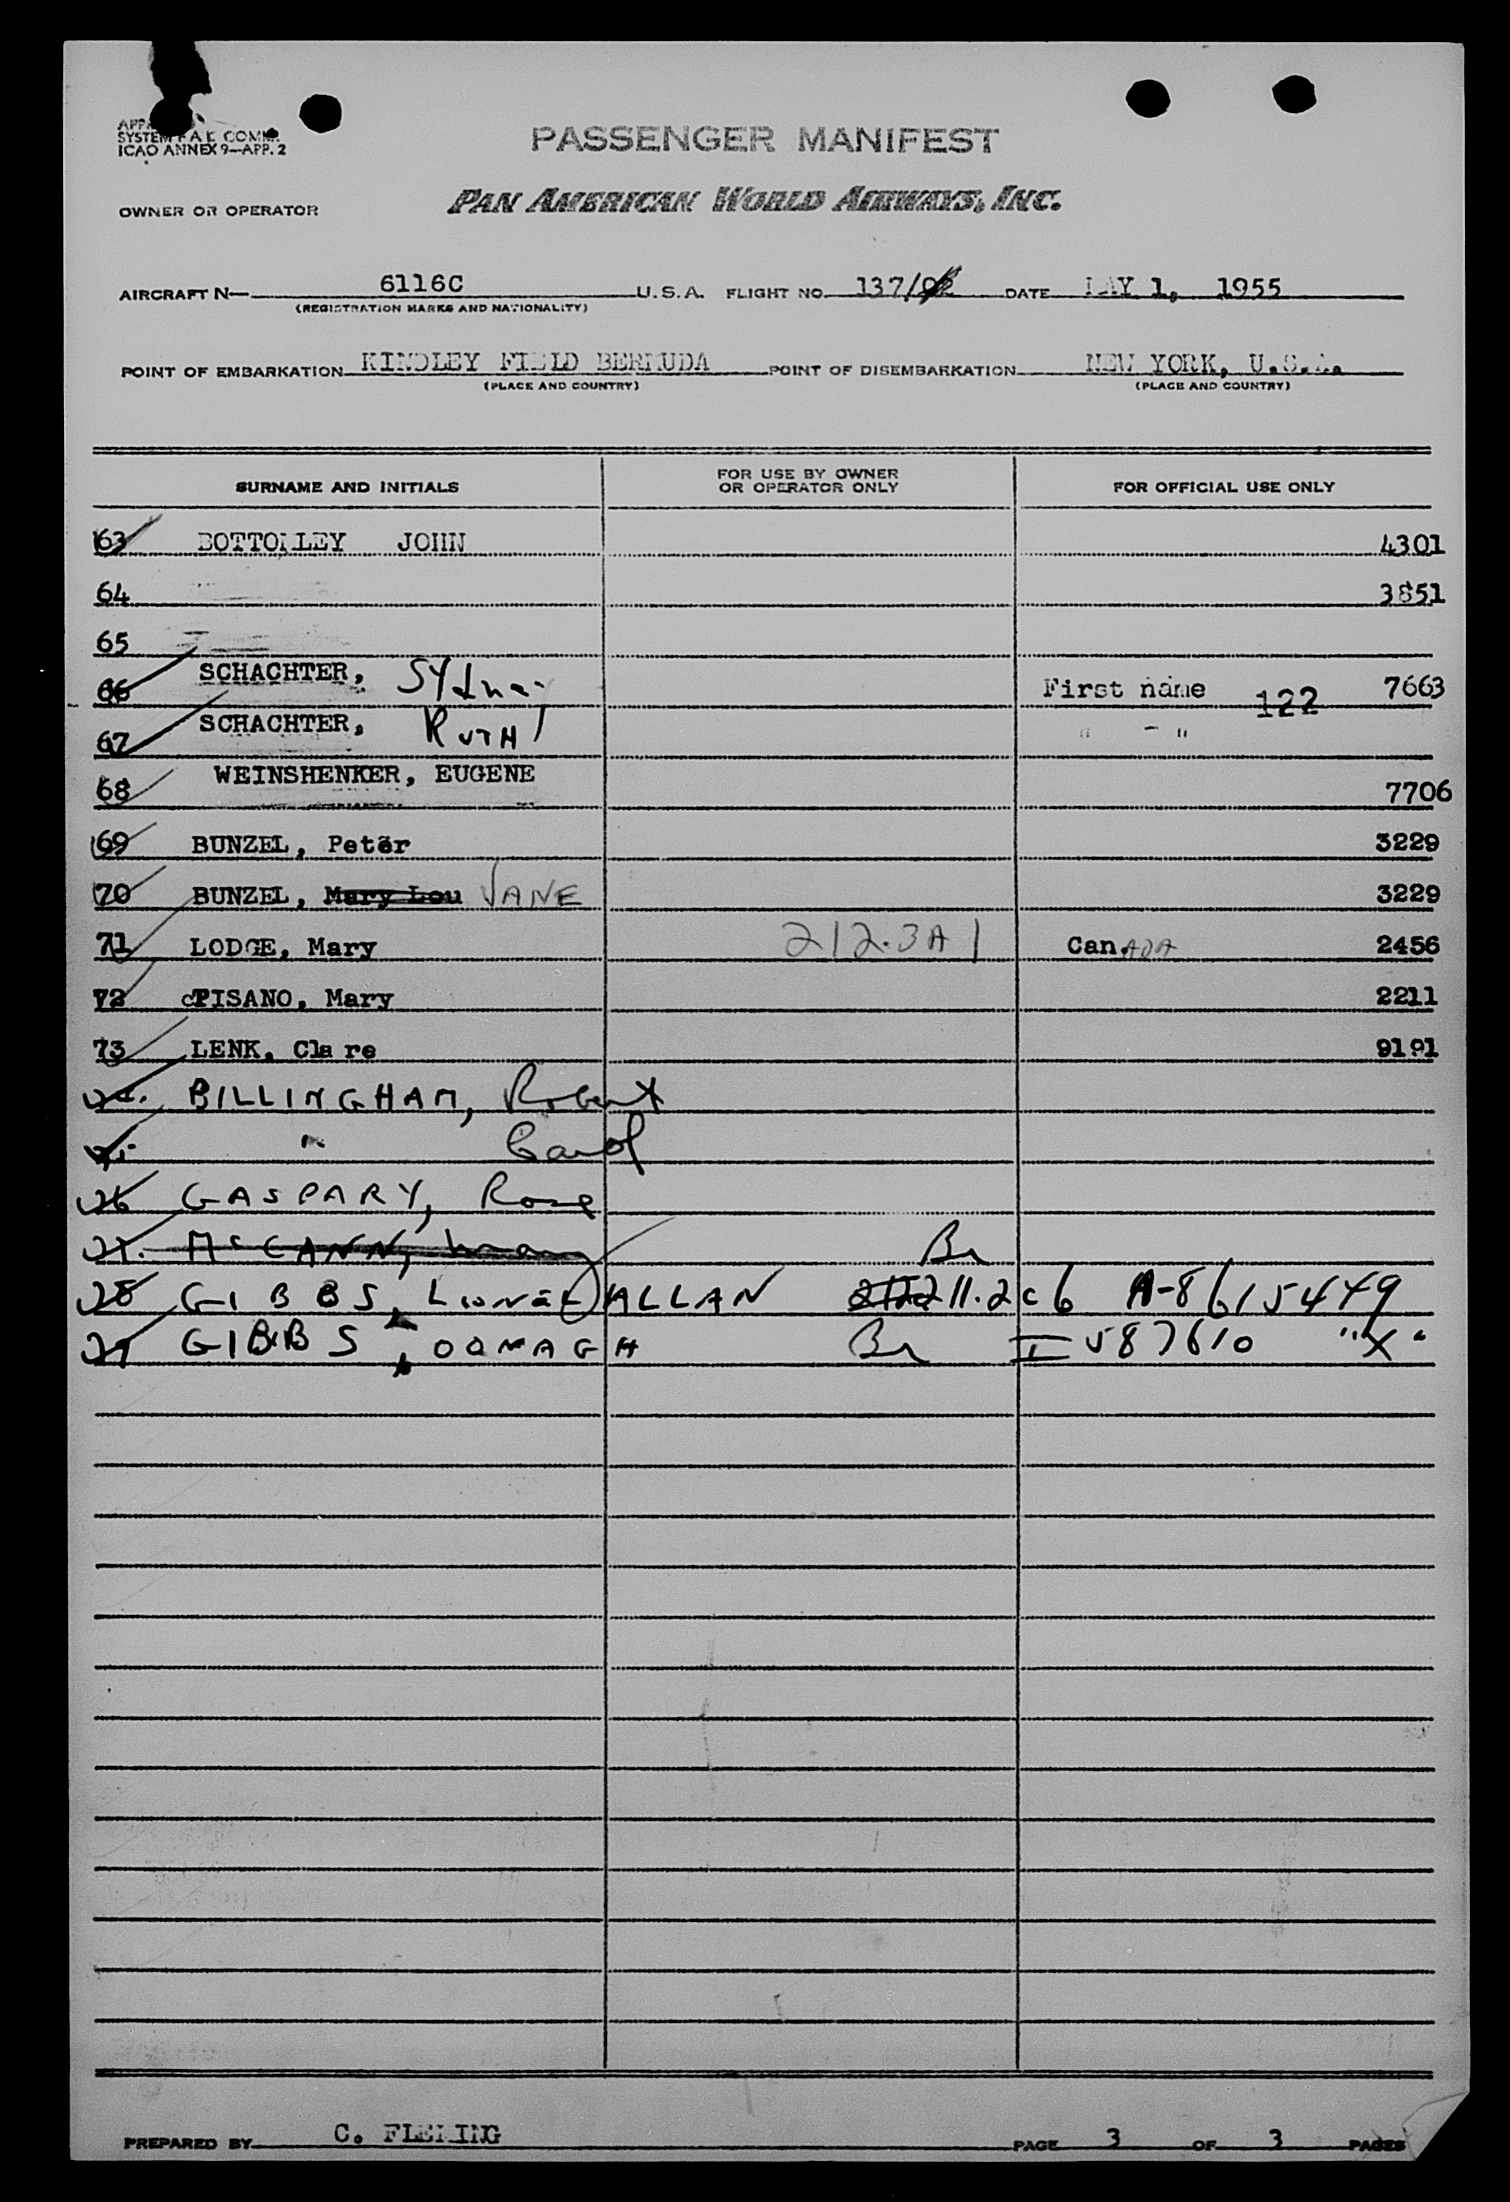 SYSTEM F.A.E. COMM.
ICAO ANNEX 9—APP. 2
PASSENGER MANIFEST
PAN AMERICAN WORLD AIRWAYS, INC.
OWNER OR OPERATOR
AIRCRAFT N— 6116C U.S.A. FLIGHT NO. 137/ DATE MAY 1, 1955
(REGISTRATION MARKS AND NATIONALITY)
POINT OF EMBARKATION KINDLEY FIELD BERMUDA POINT OF DISEMBARKATION NEW YORK, U.S.A.
(PLACE AND COUNTRY) (PLACE AND COUNTRY)
SURNAME AND INITIALS FOR USE BY OWNER OR OPERATOR ONLY FOR OFFICIAL USE ONLY
63 BOTTOMLEY JOHN 4301
64 3851
65
66 SCHACHTER, Sydney First name 122 7663
67 SCHACHTER, RUTH " - "
68 WEINSHENKER, EUGENE 7706
69 BUNZEL, Peter 3229
70 BUNZEL, Mary Lou JANE 3229
71 LODGE, Mary 212.3A1 CanADA 2456
72 PISANO, Mary 2211
73 LENK, Clare 9191
BILLINGHAM, Robert
" Carol
26 GASPARY, Rose
27. McCANN, Br
28 GIBBS, Lionel ALLAN 211.2c6 A-8615449
29 GIBBS, OONAGH Br I 587610 "X"
PREPARED BY C. FLEMING PAGE 3 OF 3 PAGES